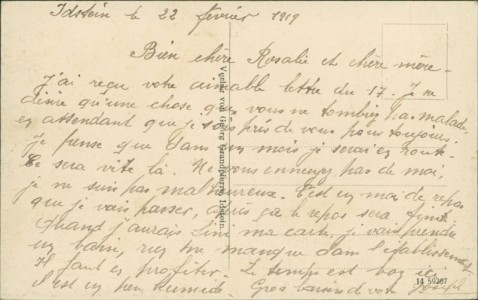 Idstein le 22 février 1919
Bien chère Rosalie et chère mère -
J'ai reçu votre aimable lettre du 17. Je ne
désire qu'une chose que vous ne tombiez pas malade,
en attendant que je sois près de vous pour toujours.
Je pense que dans un mois je serai en route.
Ce sera vite là. Ne vous ennuyez pas de moi,
je ne suis pas malheureux. C'est un mois de repos
que je vais passer, après ça le repos sera
Quand j'aurais fini ma carte, je vais prendre
un bain, rien ne manque dans l'établissement
Il faut en profiter. Le temps est bon ici
c'est un peu humide. Gros baisers de votre Joseph
Verlag von Georg Grandpierre, Idstein.
14 59207